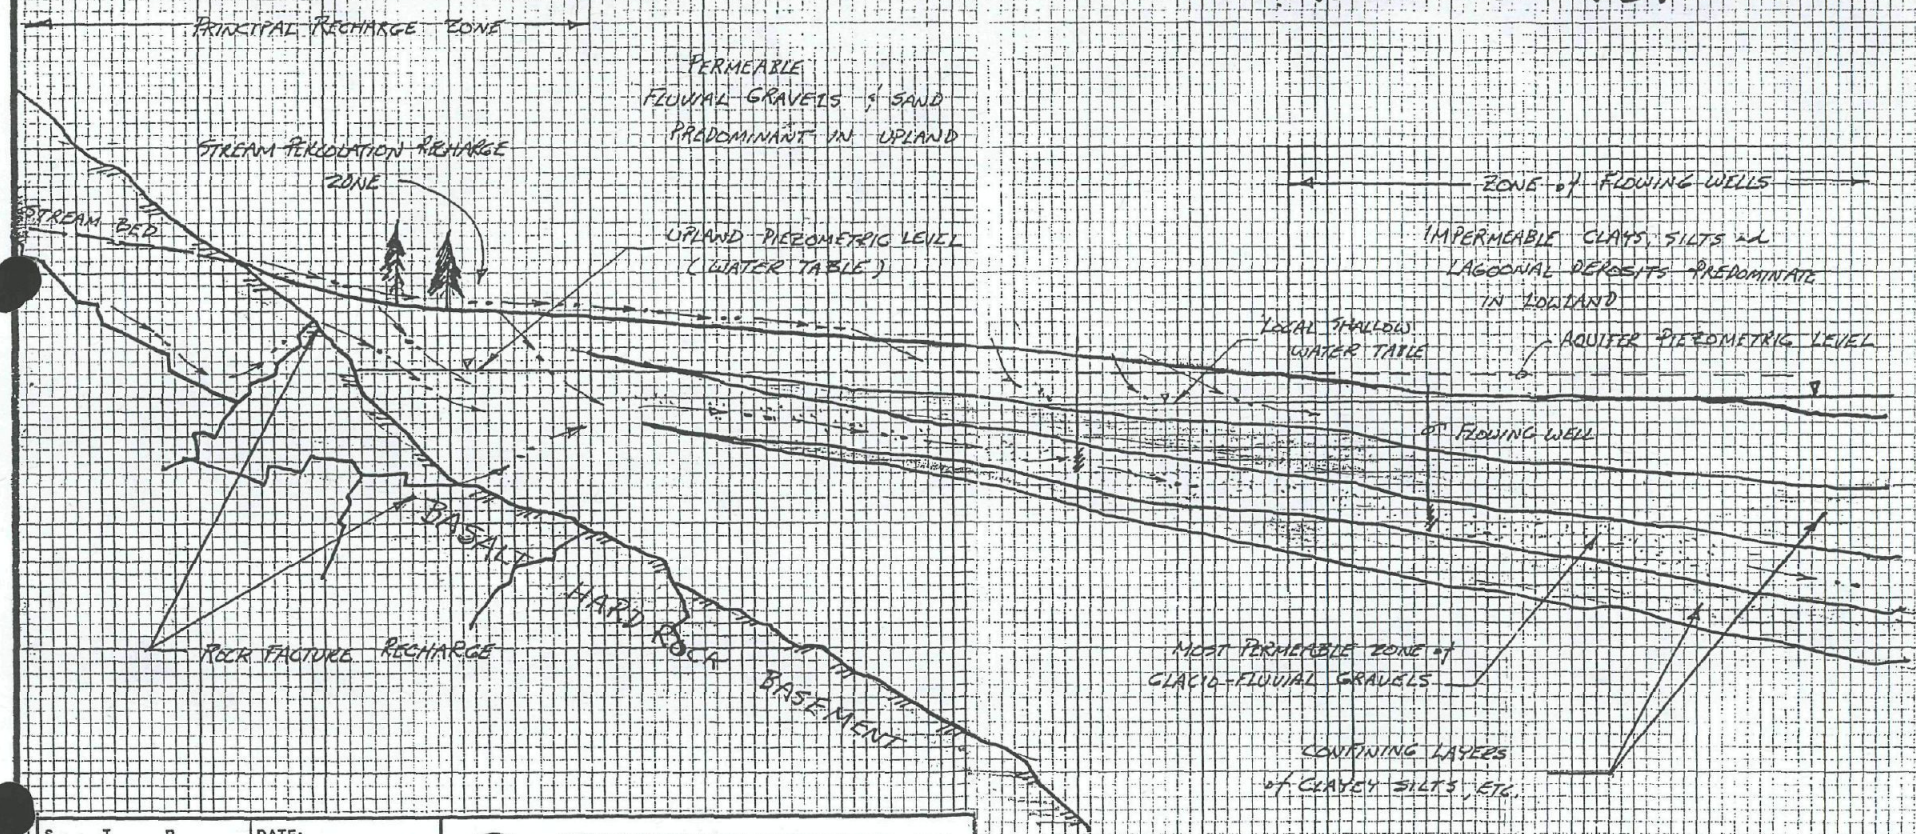 PRINCIPAL RECHARGE ZONE
PERMEABLE
FLUVIAL GRAVELS & SAND
PREDOMINANT IN UPLAND
STREAM PERCOLATION RECHARGE
ZONE
STREAM BED
UPLAND PIEZOMETRIC LEVEL
(WATER TABLE)
ZONE of FLOWING WELLS
IMPERMEABLE CLAYS, SILTS and
LAGOONAL DEPOSITS PREDOMINATE
IN LOWLAND
LOCAL SHALLOW
WATER TABLE
AQUIFER PIEZOMETRIC LEVEL
FLOWING WELL
BASALT
HARD ROCK
BASEMENT
ROCK FACTURE RECHARGE
MOST PERMEABLE ZONE of
GLACIO-FLUVIAL GRAVELS
CONFINING LAYERS
of CLAYEY SILTS, ETC.
DATE: